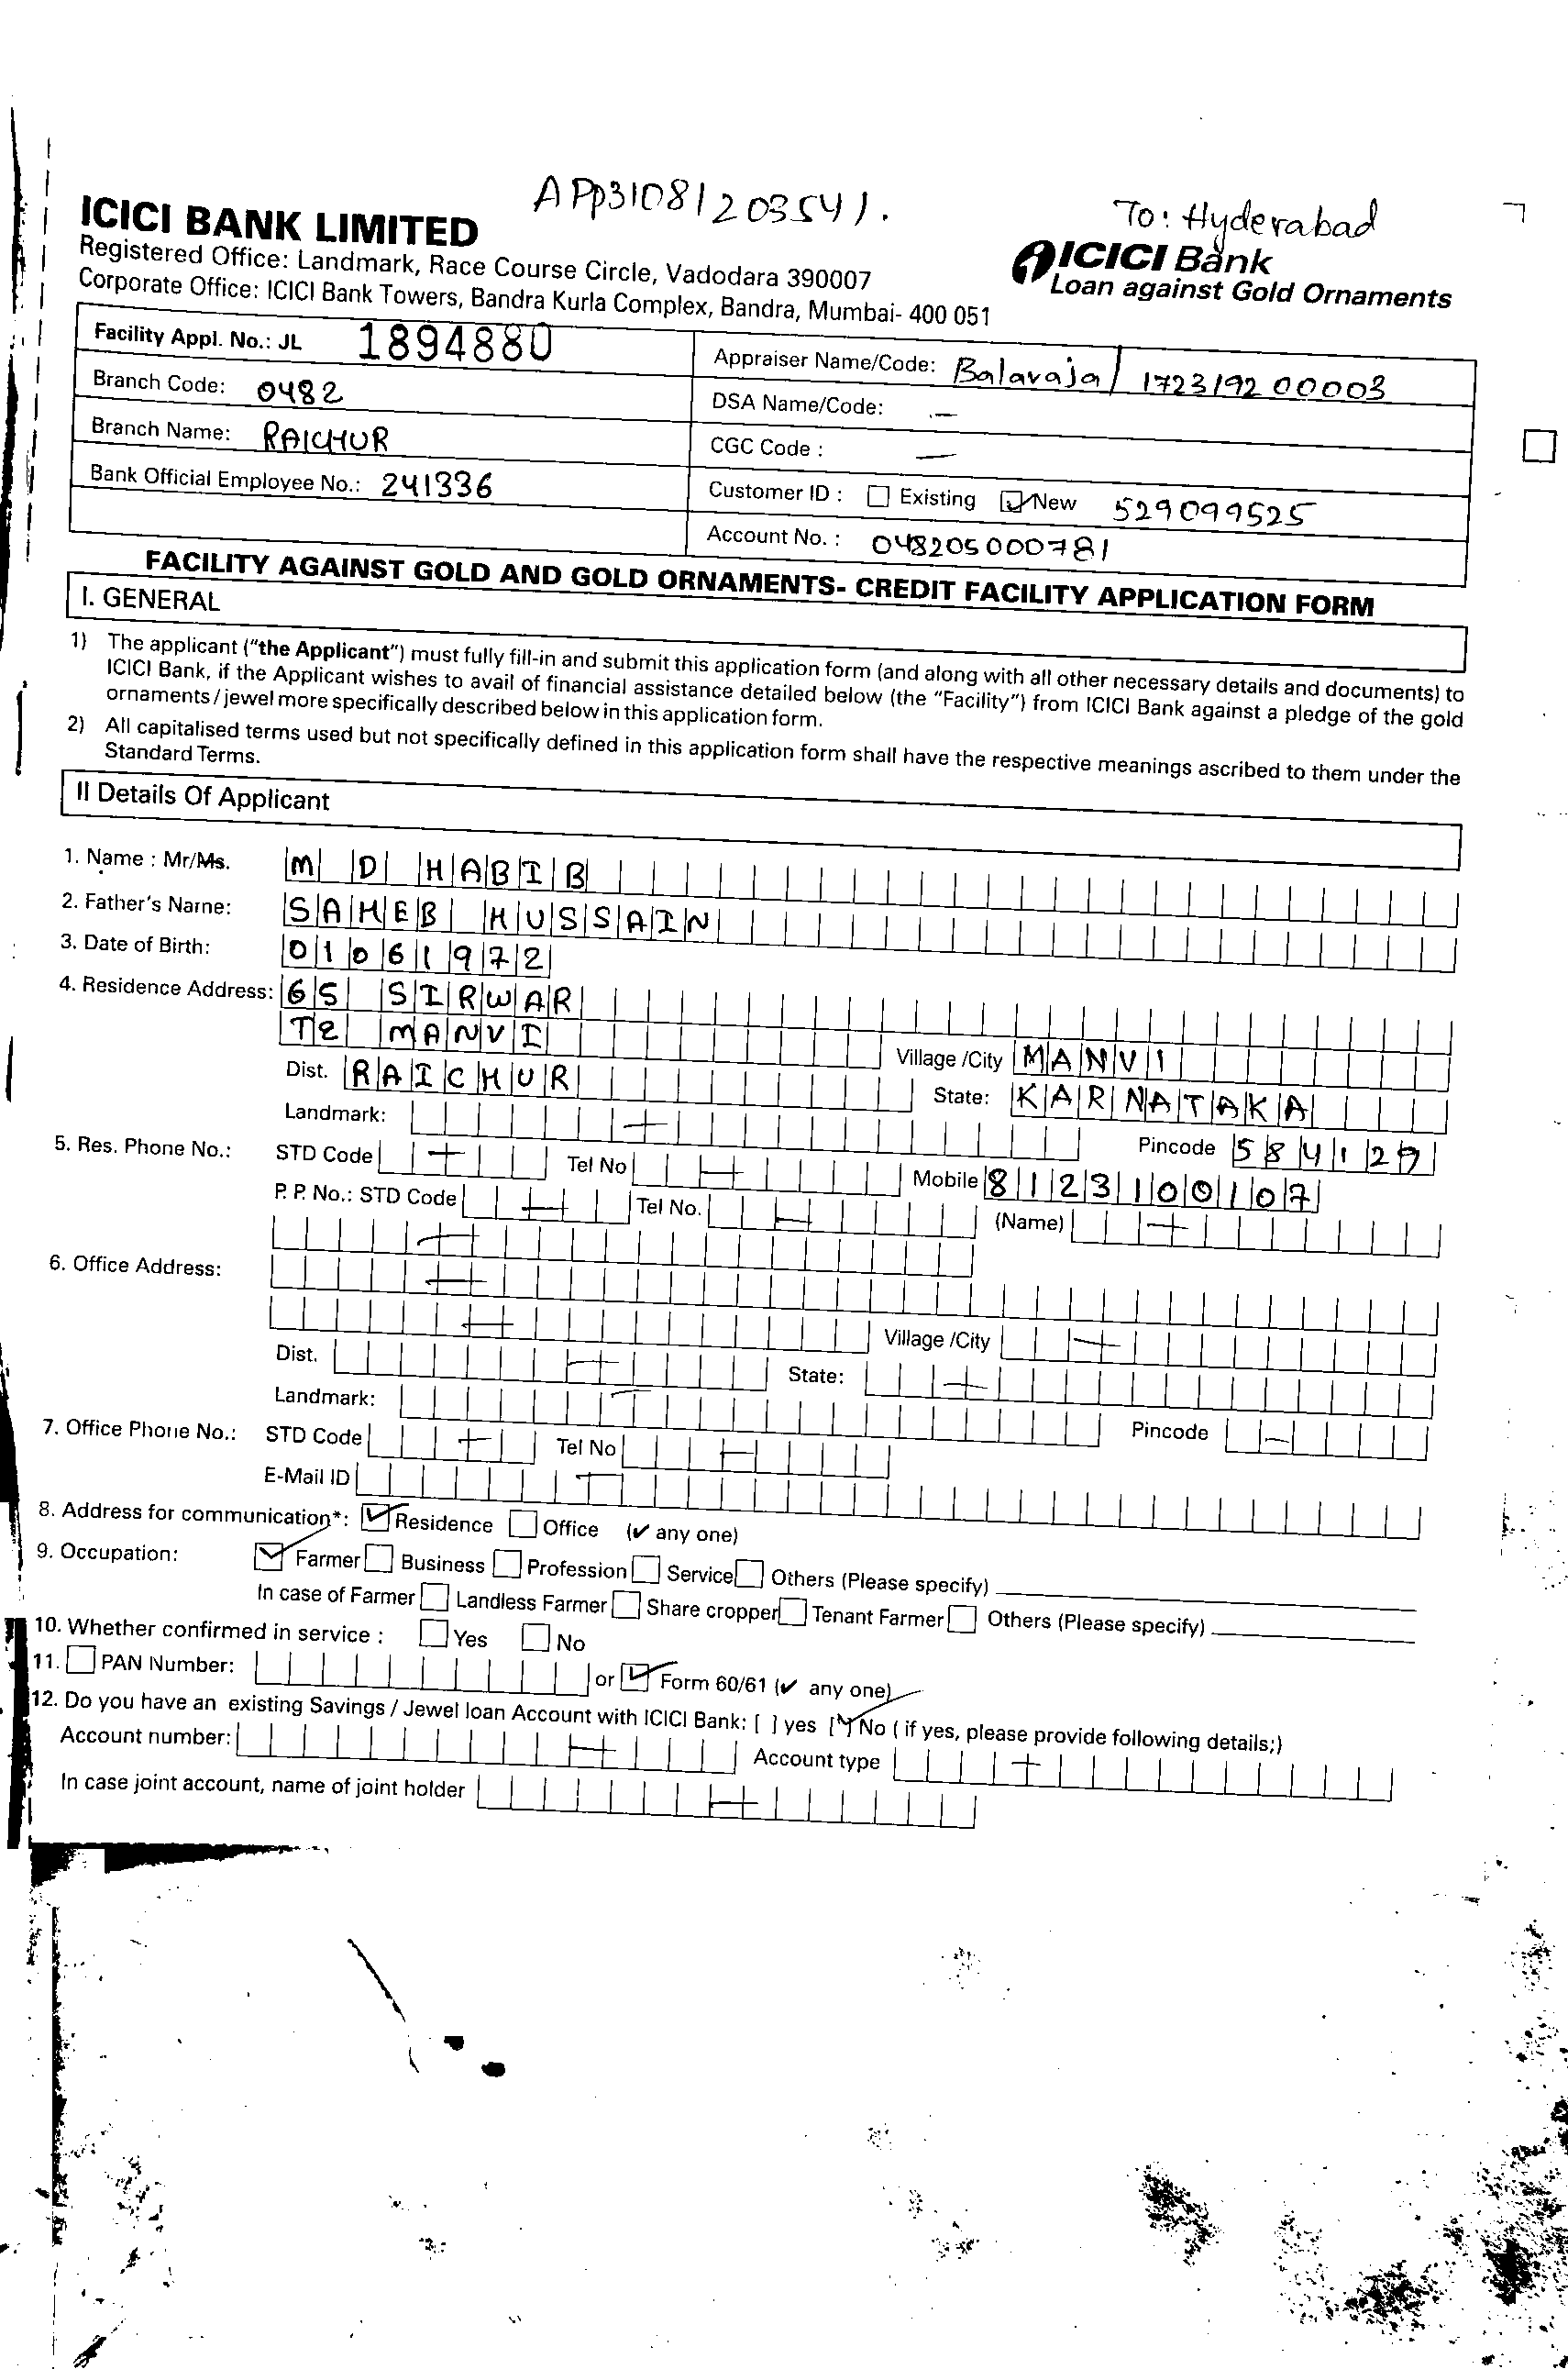 APP31081203541.
To: Hyderabad
ICICI BANK LIMITED
Registered Office: Landmark, Race Course Circle, Vadodara 390007
Corporate Office: ICICI Bank Towers, Bandra Kurla Complex, Bandra, Mumbai- 400 051
ICICI Bank
Loan against Gold Ornaments
Facility Appl. No.: JL 1894880
Appraiser Name/Code: Balaraja/ 172319200003
Branch Code: 0482
DSA Name/Code: -
Branch Name: RAICHUR
CGC Code : -
Bank Official Employee No.: 241336
Customer ID : Existing New 529099525
Account No. : 048205000781
FACILITY AGAINST GOLD AND GOLD ORNAMENTS- CREDIT FACILITY APPLICATION FORM
I. GENERAL
1) The applicant ("the Applicant") must fully fill-in and submit this application form (and along with all other necessary details and documents) to
ICICI Bank, if the Applicant wishes to avail of financial assistance detailed below (the "Facility") from ICICI Bank against a pledge of the gold
ornaments/jewel more specifically described below in this application form.
2) All capitalised terms used but not specifically defined in this application form shall have the respective meanings ascribed to them under the
Standard Terms.
II Details Of Applicant
1. Name : Mr/Ms. M D HABIB
2. Father's Name: SAHEB HUSSAIN
3. Date of Birth: 01061972
4. Residence Address: 65 SIRWAR
MANVI Village /City MANVI
Dist. RAICHUR State: KARNATAKA
Landmark: - Pincode 584129
5. Res. Phone No.: STD Code - Tel No - Mobile 8123100107
P. P. No.: STD Code - Tel No. - (Name) -
6. Office Address: -
Village /City -
Dist. - State: -
Landmark: - Pincode -
7. Office Phone No.: STD Code - Tel No -
E-Mail ID -
8. Address for communication*: ✓ Residence Office (✓ any one)
9. Occupation: ✓ Farmer Business Profession Service Others (Please specify)
In case of Farmer Landless Farmer Share cropper Tenant Farmer Others (Please specify)
10. Whether confirmed in service : Yes No
11. PAN Number: or ✓ Form 60/61 (✓ any one)
12. Do you have an existing Savings / Jewel loan Account with ICICI Bank: [ ] yes [✓] No ( if yes, please provide following details;)
Account number: - Account type -
In case joint account, name of joint holder -